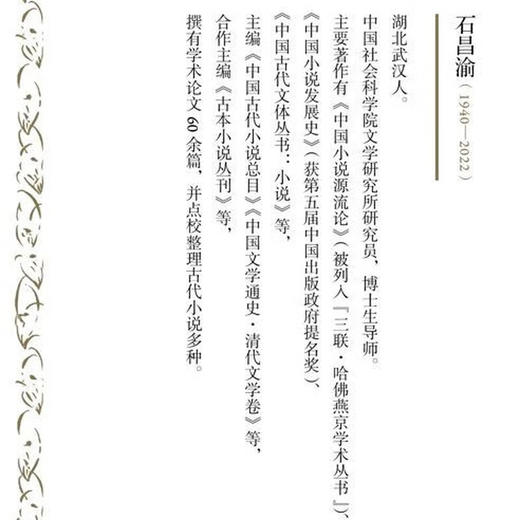 石昌渝（1940—2022）
湖北武汉人。
中国社会科学院文学研究所研究员，博士生导师。
主要著作有《中国小说源流论》（被列入『三联·哈佛燕京学术丛书』）、
《中国小说发展史》（获第五届中国出版政府提名奖）、
《中国古代文体丛书：小说》等，
主编《中国古代小说总目》《中国文学通史·清代文学卷》等，
合作主编《古本小说丛刊》等，
撰有学术论文 60 余篇，并点校整理古代小说多种。